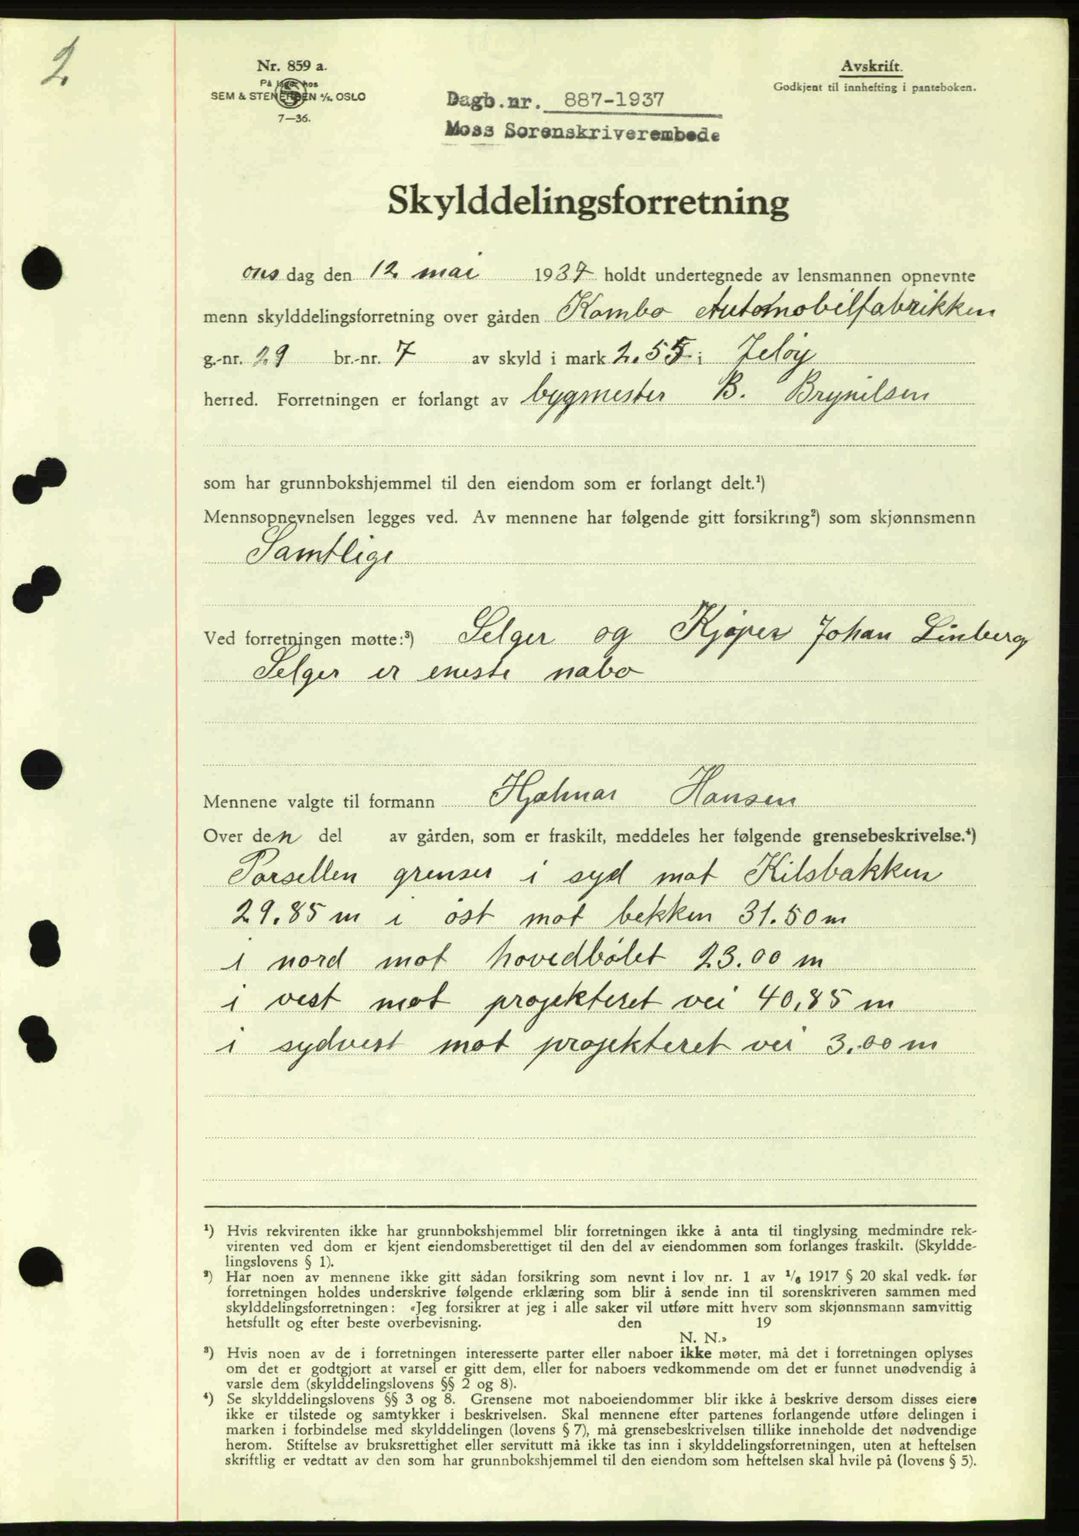 2.
Nr. 859 a.
På lager hos
SEM & STENERSEN A/S, OSLO
7—36.
Avskrift.
Godkjent til innhefting i panteboken.
Dagb.nr. 887-1937
Moss Sorenskriverembede
Skylddelingsforretning
ons dag den 12 mai 1937 holdt undertegnede av lensmannen opnevnte
menn skylddelingsforretning over gården Kambo Automobilfabrikken
g.-nr. 29 br.-nr. 7 av skyld i mark 2.55 i Jeløy
herred. Forretningen er forlangt av bygmester B. Brynilsen
som har grunnbokshjemmel til den eiendom som er forlangt delt.¹)
Mennsopnevnelsen legges ved. Av mennene har følgende gitt forsikring²) som skjønnsmenn
Samtlige
Ved forretningen møtte:³) Selger og Kjøper Johan Linberg
Selger er eneste nabo
Mennene valgte til formann Hjalmar Hansen
Over den del av gården, som er fraskilt, meddeles her følgende grensebeskrivelse.⁴)
Parsellen grenser i syd mot Kilsbakken
29.85 m i øst mot bekken 31.50 m
i nord mot hovedbølet 23.00 m
i vest mot projekteret vei 40,85 m
i sydvest mot projekteret vei 3.00 m
¹) Hvis rekvirenten ikke har grunnbokshjemmel blir forretningen ikke å anta til tinglysing medmindre rek-
virenten ved dom er kjent eiendomsberettiget til den del av eiendommen som forlanges fraskilt. (Skyldde-
lingslovens § 1).
²) Har noen av mennene ikke gitt sådan forsikring som nevnt i lov nr. 1 av 1/6 1917 § 20 skal vedk. før
forretningen holdes underskrive følgende erklæring som blir å sende inn til sorenskriveren sammen med
skylddelingsforretningen: «Jeg forsikrer at jeg i alle saker vil utføre mitt hverv som skjønnsmann samvittig
hetsfullt og efter beste overbevisning. den 19
N. N.»
³) Hvis noen av de i forretningen interesserte parter eller naboer ikke møter, må det i forretningen oplyses
om det er godtgjort at varsel er gitt dem, eller for naboers vedkommende om det er funnet unødvendig å
varsle dem (skylddelingslovens §§ 2 og 8).
⁴) Se skylddelingslovens §§ 3 og 8. Grensene mot naboeiendommer blir ikke å beskrive dersom disses eiere
ikke er tilstede og samtykker i beskrivelsen. Skal mennene efter partenes forlangende utføre delingen i
marken i forbindelse med skylddelingen (lovens § 7), må grensebeskrivelsen tillike inneholde det nødvendige
herom. Stiftelse av bruksrettighet eller servitutt må ikke tas inn i skylddelingsforretningen, uten at heftelsen
skriftlig er vedtatt av den som har grunnbokshjemmel til den eiendom som heftelsen skal hvile på (lovens § 5).